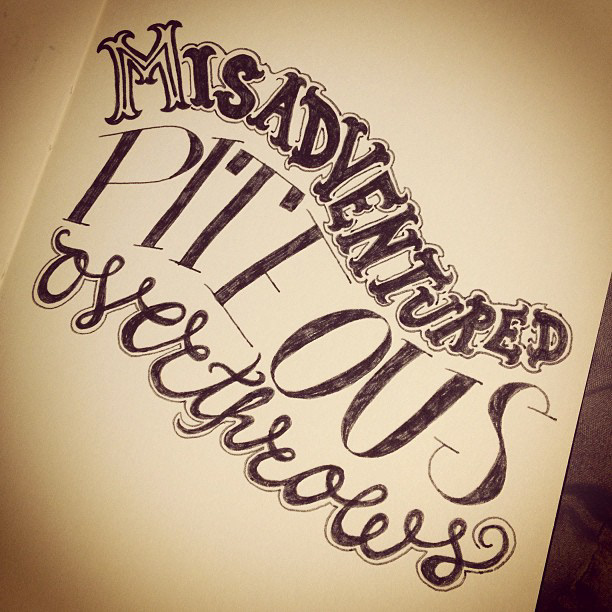 MISADVENTURED
PITEOUS
overthrows